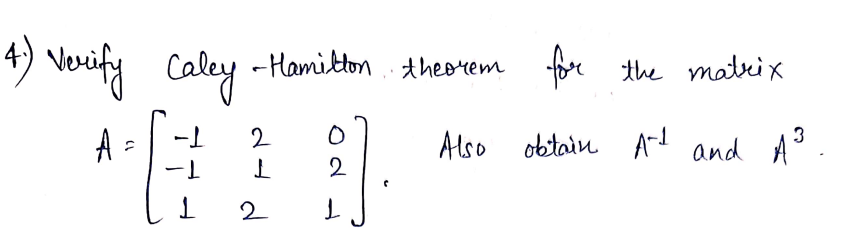 4.) Verify Caley-Hamilton theorem for the matrix
A = [ -1 2 0
-1 1 2
1 2 1 ]. Also obtain A⁻¹ and A³.